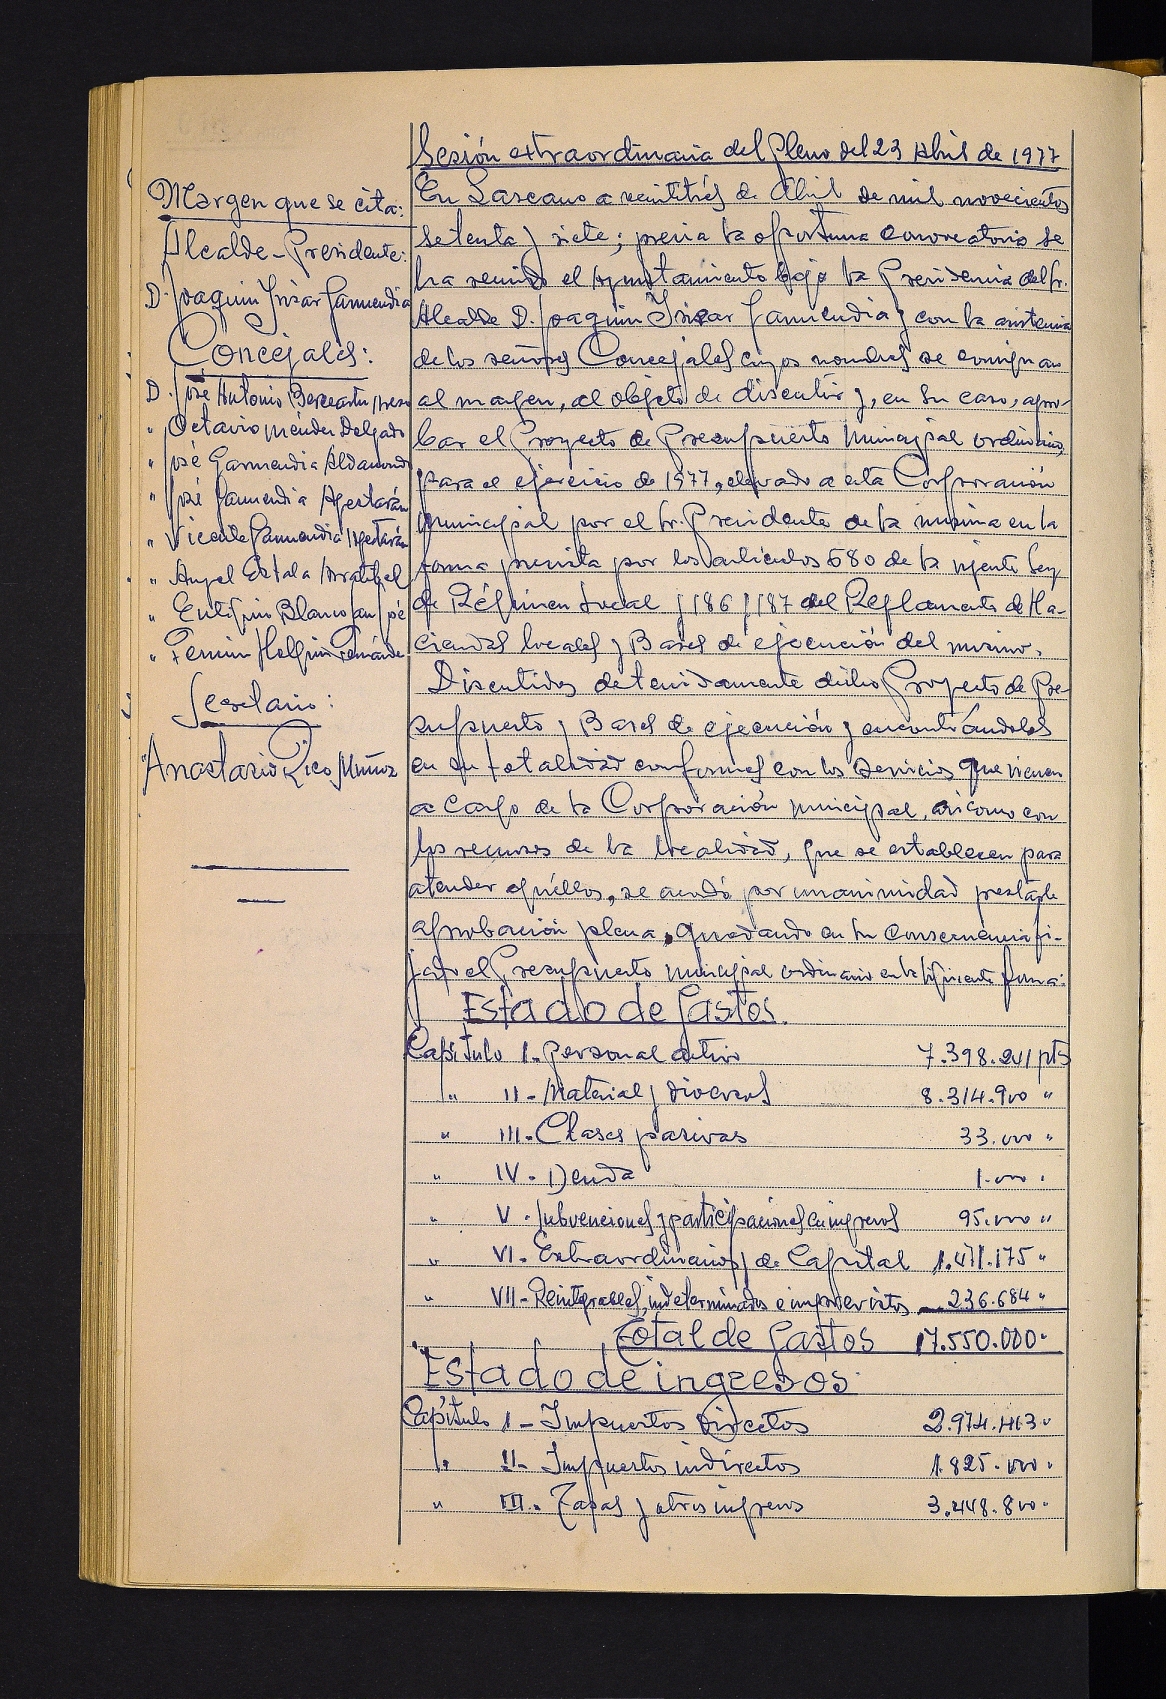 Sesión extraordinaria del Pleno del 23 Abril de 1977
Margen que se cita:
Alcalde-Presidente:
D. Joaquin Irizar Garmendia
Concejales:
D. José Antonio Berceartu
" Octavio Méndez Delgado
" José Garmendia Aldanondo
" José Garmendia Agestarán
" Vicente Garmendia Agestarán
" Angel Estala Arratibel
" Eutiquio Blanco San José
" Fermin Holguin Fernández
Secretario:
Anastasio Rico Muñoz
En Lazcano a veintitrés de Abril de mil novecientos
setenta y siete; previa la oportuna convocatoria se
ha reunido el Ayuntamiento bajo la Presidencia del Sr.
Alcalde D. Joaquin Irizar Garmendia y con la asistencia
de los señores Concejales cuyos nombres se consignan
al margen, al objeto de discutir y, en su caso, apro-
bar el Proyecto de Presupuesto Municipal ordinario,
para el ejercicio de 1977, elevado a esta Corporación
municipal por el Sr. Presidente de la misma en la
forma prevista por los artículos 680 de la vigente Ley
de Régimen Local y 186 y 187 del Reglamento de Ha-
ciendas locales y Bases de ejecución del mismo.
Discutidos detenidamente dicho Proyecto de Pre-
supuesto y Bases de ejecución y encontrándolos
en su totalidad conformes con los servicios que vienen
a cargo de la Corporación municipal, asi como con
los recursos de la localidad, que se establecen para
atender aquéllos, se acordó por unanimidad prestarle
aprobación plena, quedando en su consecuencia fi-
jado el Presupuesto municipal ordinario en la siguiente forma:
Estado de Gastos.
Capítulo I.- Personal activo 7.398.241 pts
" II- Material y diversos 8.314.900 "
" III.- Clases pasivas 33.000 "
" IV- Deuda 1.000 "
" V- Subvenciones y participaciones en ingresos 95.000 "
" VI- Extraordinarios y de Capital 1.471.175 "
" VII- Reintegrables, indeterminados e imprevistos 236.684 "
Total de Gastos 17.550.000"
Estado de ingresos.
Capítulo I- Impuestos Directos 2.974.463 "
" II- Impuestos indirectos 1.825.000 "
" III.- Tasas y otros ingresos 3.448.800 "